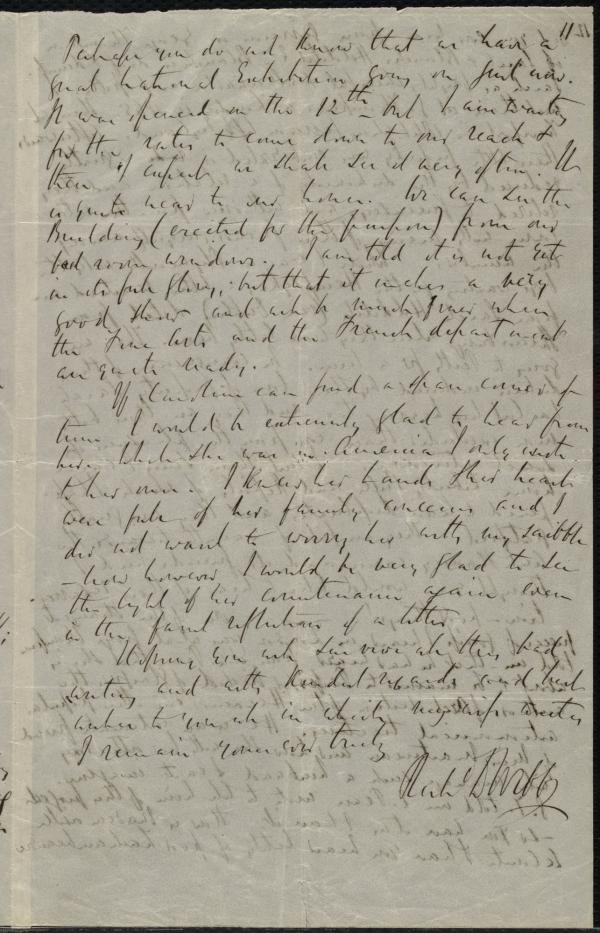 11
Perhaps you do not know that we have a
great National Exhibition going on just now.
It was opened on the 12th - but I am waiting
for the rates to come down to our reach &
then I expect we shall see it very often. It
is quite near to our house. We can see the
Building (erected for the purpose) from our
bed room windows. I am told it is not yet
in its full glory, but that it makes a very
good show and will be much finer when
the Fine Arts and the French department
are quite ready.
If Caroline can find a spare corner of
time I would be extremely glad to hear from
her. While she was in America I only wrote
to her once. I knew her hands & her heart
were full of her family concerns and I
did not want to worry her with my scribble
- now however I would be very glad to see
the light of her countenance again even
in the faint reflection of a letter.
Hoping you will survive all this bad
writing and with kindest regards and best
wishes to you all in which my wife unites
I remain yours very truly
Richd D Webb